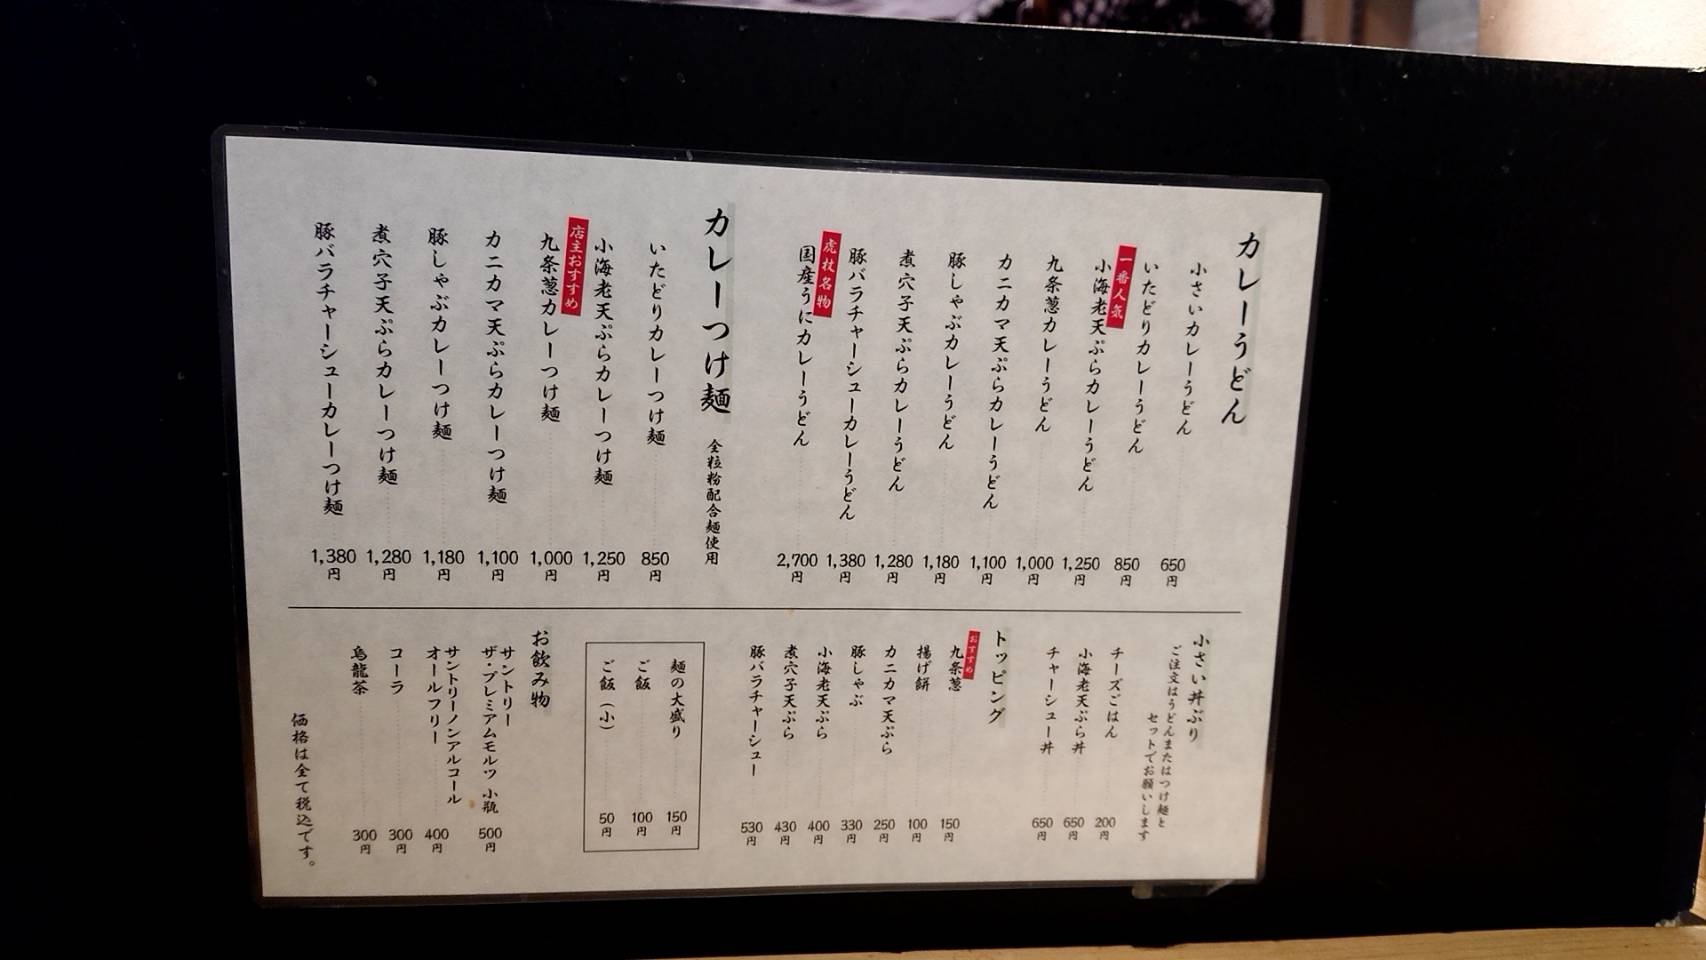 カレーうどん
小さいカレーうどん 650円
いたどりカレーうどん 850円
一番人気
小海老天ぷらカレーうどん 1,250円
九条葱カレーうどん 1,000円
カニカマ天ぷらカレーうどん 1,100円
豚しゃぶカレーうどん 1,180円
煮穴子天ぷらカレーうどん 1,280円
豚バラチャーシューカレーうどん 1,380円
虎杖名物
国産うにカレーうどん 2,700円
カレーつけ麺 全粒粉配合麺使用
いたどりカレーつけ麺 850円
小海老天ぷらカレーつけ麺 1,250円
店主おすすめ
九条葱カレーつけ麺 1,000円
カニカマ天ぷらカレーつけ麺 1,100円
豚しゃぶカレーつけ麺 1,180円
煮穴子天ぷらカレーつけ麺 1,280円
豚バラチャーシューカレーつけ麺 1,380円
小さい丼ぶり
ご注文はうどんまたはつけ麺と
セットでお願いします
チーズごはん 200円
小海老天ぷら丼 650円
チャーシュー丼 650円
トッピング
おすすめ
九条葱 150円
揚げ餅 100円
カニカマ天ぷら 250円
豚しゃぶ 330円
小海老天ぷら 400円
煮穴子天ぷら 430円
豚バラチャーシュー 530円
麺の大盛り 150円
ご飯 100円
ご飯(小) 50円
お飲み物
サントリー
ザ・プレミアムモルツ 小瓶 500円
サントリーノンアルコール
オールフリー 400円
コーラ 300円
烏龍茶 300円
価格は全て税込です。